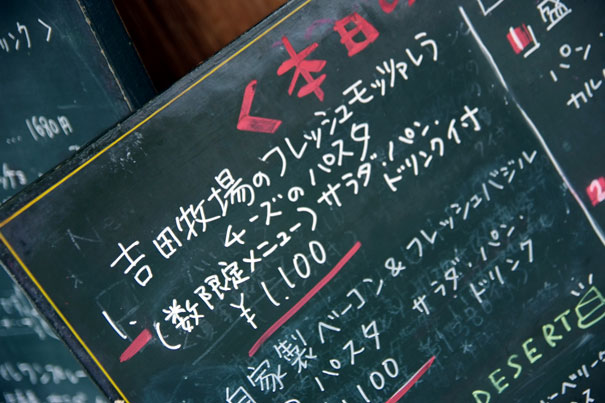 リンク>
1680円
<本日
吉田牧場のフレッシュモッツァレラ
チーズのパスタ
1. (数限定メニュー) サラダ・パン・
ドリンク付
¥1.100
自家製ベーコン&フレッシュバジル
のパスタ サラダ・パン・
ドリンク
100
DESERT
盛
パン・
カル
2